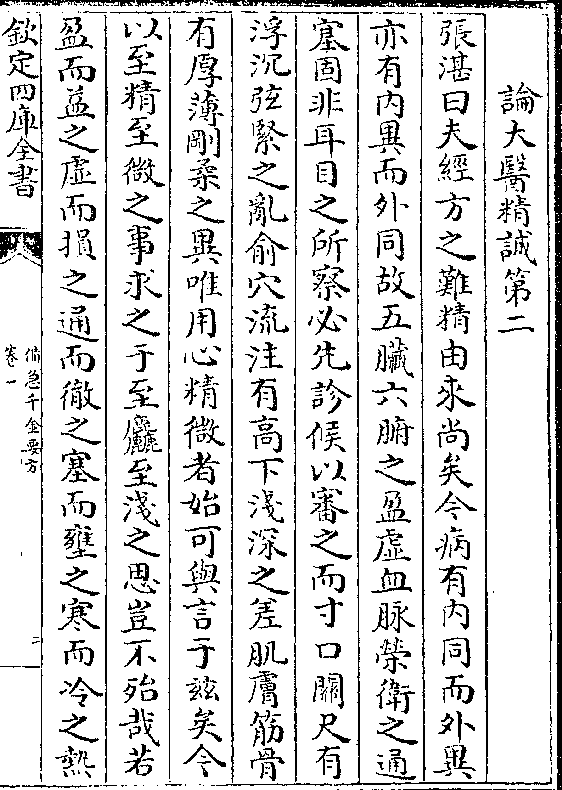 論大醫精誠第二
張湛曰夫經方之難精由來尚矣今病有內同而外異
亦有內異而外同故五臟六腑之盈虛血脉榮衛之通
塞固非耳目之所察必先診候以審之而寸口關尺有
浮沉弦緊之亂俞穴流注有高下淺深之差肌膚筋骨
有厚薄剛柔之異唯用心精微者始可與言于兹矣今
以至精至微之事求之于至麤至淺之思豈不殆哉若
盈而益之虛而損之通而徹之塞而壅之寒而冷之熱
欽定四庫全書
備急千金要方
卷一
二